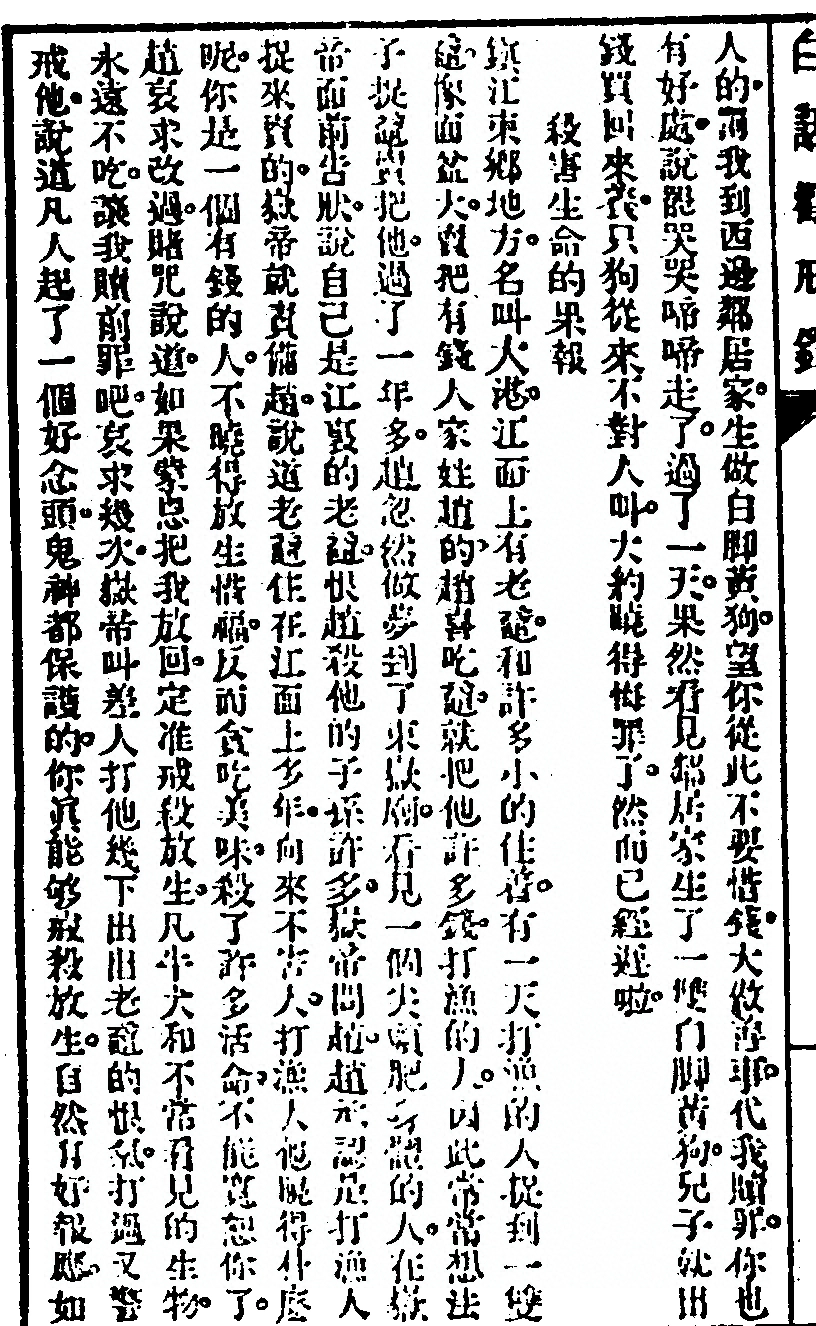 白話勸戒錄
人的。罰我到西邊鄰居家。生做白脚黃狗。望你從此不要惜錢。大做善事。代我贖罪。你也
有好處。說罷哭哭啼啼走了。過了一天。果然看見鄰居家生了一雙白脚黃狗。兒子就出
錢買回來養。只狗從來不對人叫。大約曉得悔罪了。然而已經遲啦。
殺害生命的果報
鎮江東鄉地方。名叫大港。江面上有老黿。和許多小的住着。有一天打漁的人捉到一雙
黿。像面盆大。賣把有錢人家姓趙的。趙喜吃黿。就把他許多錢。打漁的人。因此常常想法
子捉黿賣把他。過了一年多。趙忽然做夢到了東嶽廟。看見一個尖頭肥身體的人。在嶽
帝面前告狀。說自己是江裏的老黿。恨趙殺他的子孫許多。嶽帝問趙。趙承認是打漁人
捉來賣的。嶽帝就責備趙。說道老黿住在江面上多年。向來不害人。打漁人他曉得什麼
呢。你是一個有錢的人。不曉得放生惜福。反而貪吃美味。殺了許多活命。不能寬恕你了。
趙哀求改過。賭咒說道。如果蒙恩把我放回。定准戒殺放生。凡牛犬和不常看見的生物。
永遠不吃。讓我贖前罪吧。哀求幾次。嶽帝叫差人打他幾下出出老黿的恨氣。打過又警
戒他。說道凡人起了一個好念頭。鬼神都保護的。你眞能够戒殺放生。自然有好報應。如